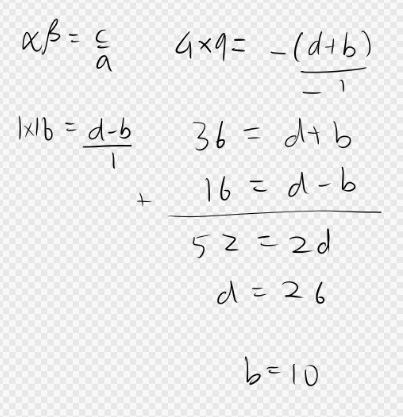 αβ = c/a
4×9 = -(d+b)/-1
1×16 = d-b/1
36 = d+b
+ 16 = d-b
52 = 2d
d = 26
b = 10